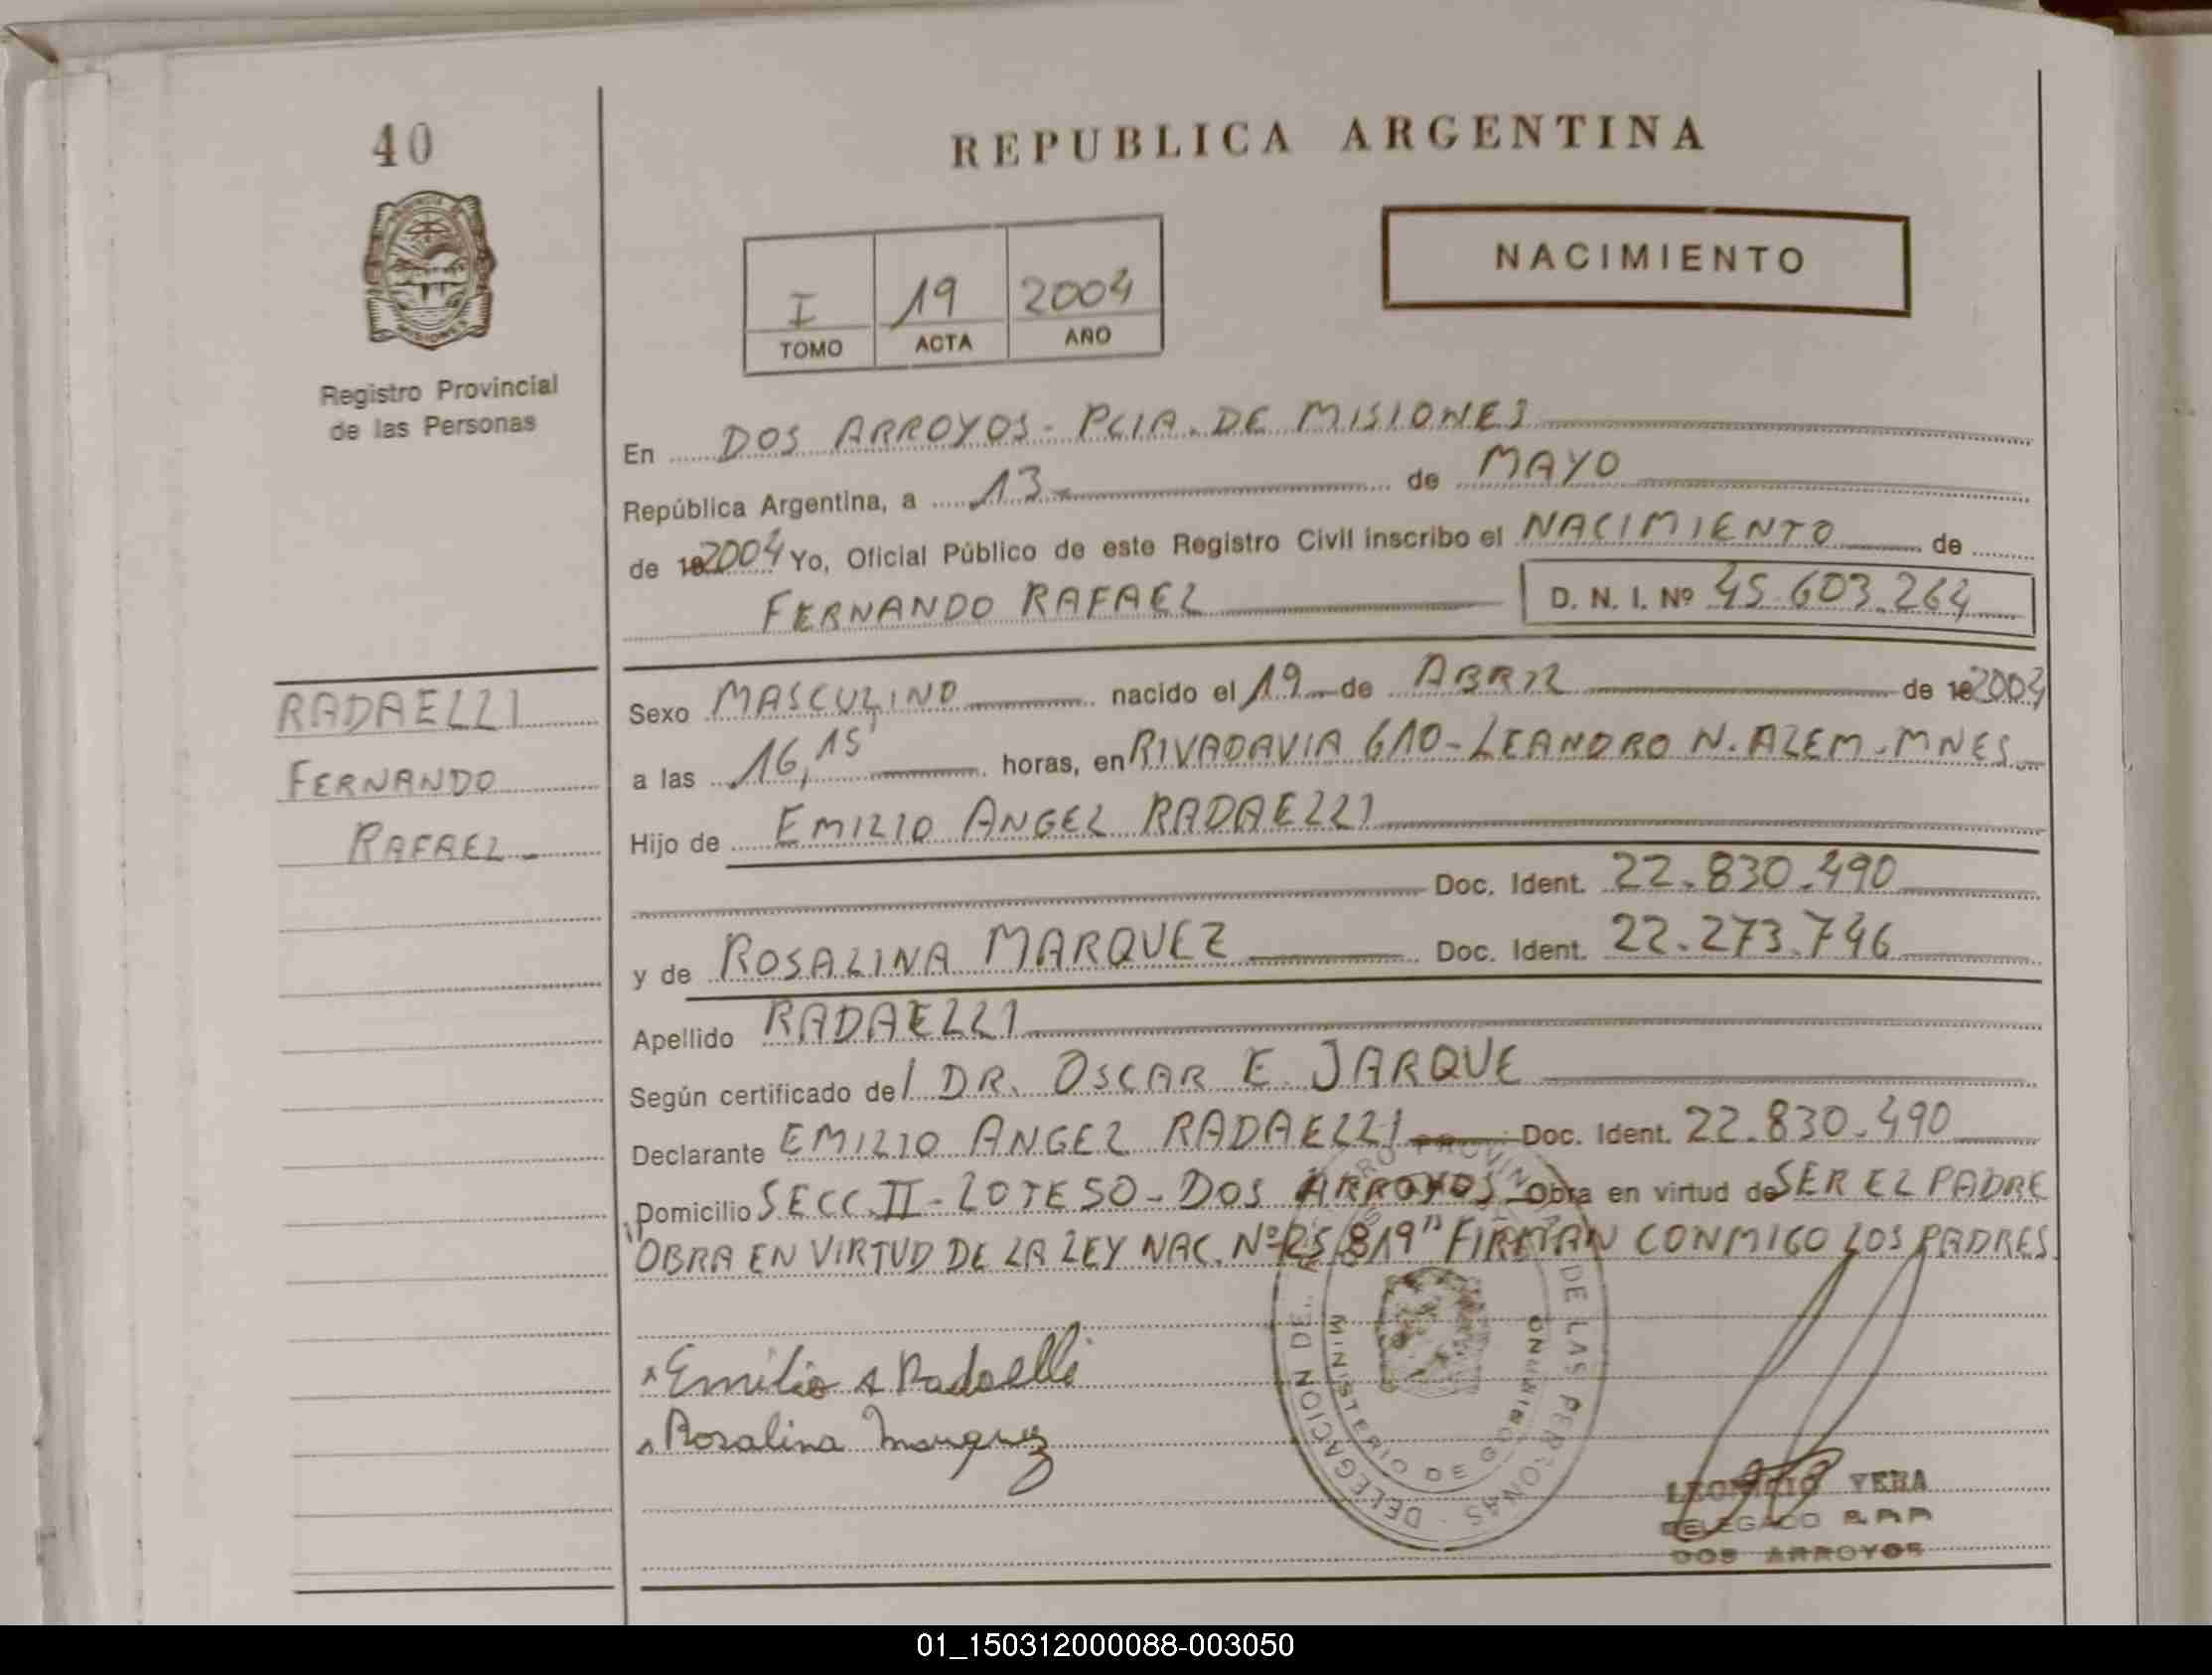 40
REPUBLICA ARGENTINA
NACIMIENTO
I 19 2004
TOMO ACTA AÑO
Registro Provincial
de las Personas
En DOS ARROYOS - PCIA. DE MISIONES
República Argentina, a 13 de MAYO
de 2004 Yo, Oficial Público de este Registro Civil inscribo el NACIMIENTO de
FERNANDO RAFAEL D. N. I. Nº 45.603.264
RADAELLI
FERNANDO
RAFAEL -
Sexo MASCULINO nacido el 19 de ABRIL de 2004
a las 16,15' horas, en RIVADAVIA 610 - LEANDRO N. ALEM - MNES
Hijo de EMILIO ANGEL RADAELLI
Doc. Ident. 22.830.490
y de ROSALINA MARQUEZ Doc. Ident. 22.273.746
Apellido RADAELLI
Según certificado del DR. OSCAR E. JARQUE
Declarante EMILIO ANGEL RADAELLI Doc. Ident. 22.830.490
Domicilio SECC. II - LOTE 50 - DOS ARROYOS Obra en virtud de SER EL PADRE
"OBRA EN VIRTUD DE LA LEY NAC. Nº 25.819" FIRMAN CONMIGO LOS PADRES
Emilio A Radaelli
Rosalina Marquez
DE LAS PERSONAS
DELEGACION DE
MINISTERIO DE
VERA
DELEGADO
DOS ARROYOS
01_150312000088-003050